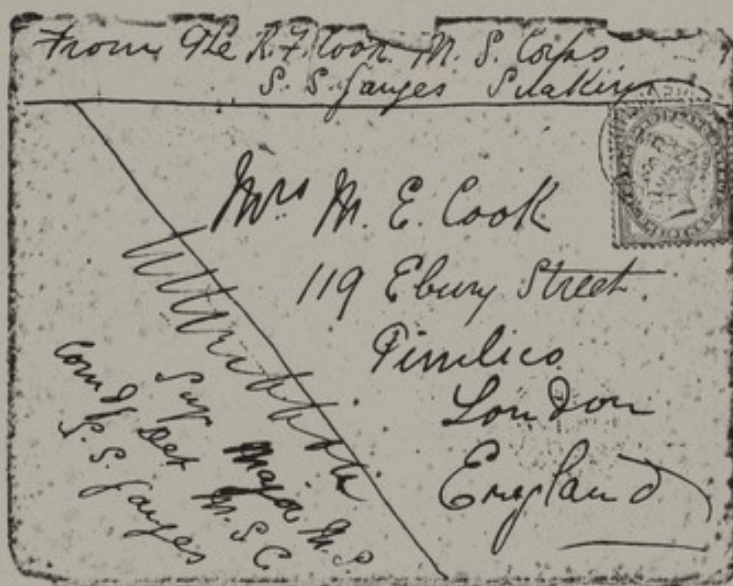 From Pte R. F. Cook M. S. Corps
S. S. Ganges Suakin
Mrs M. E. Cook
119 Ebury Street
Pimlico
London
England
Surg Major M.S
Comdg Det M.S.C.
S.S. Ganges